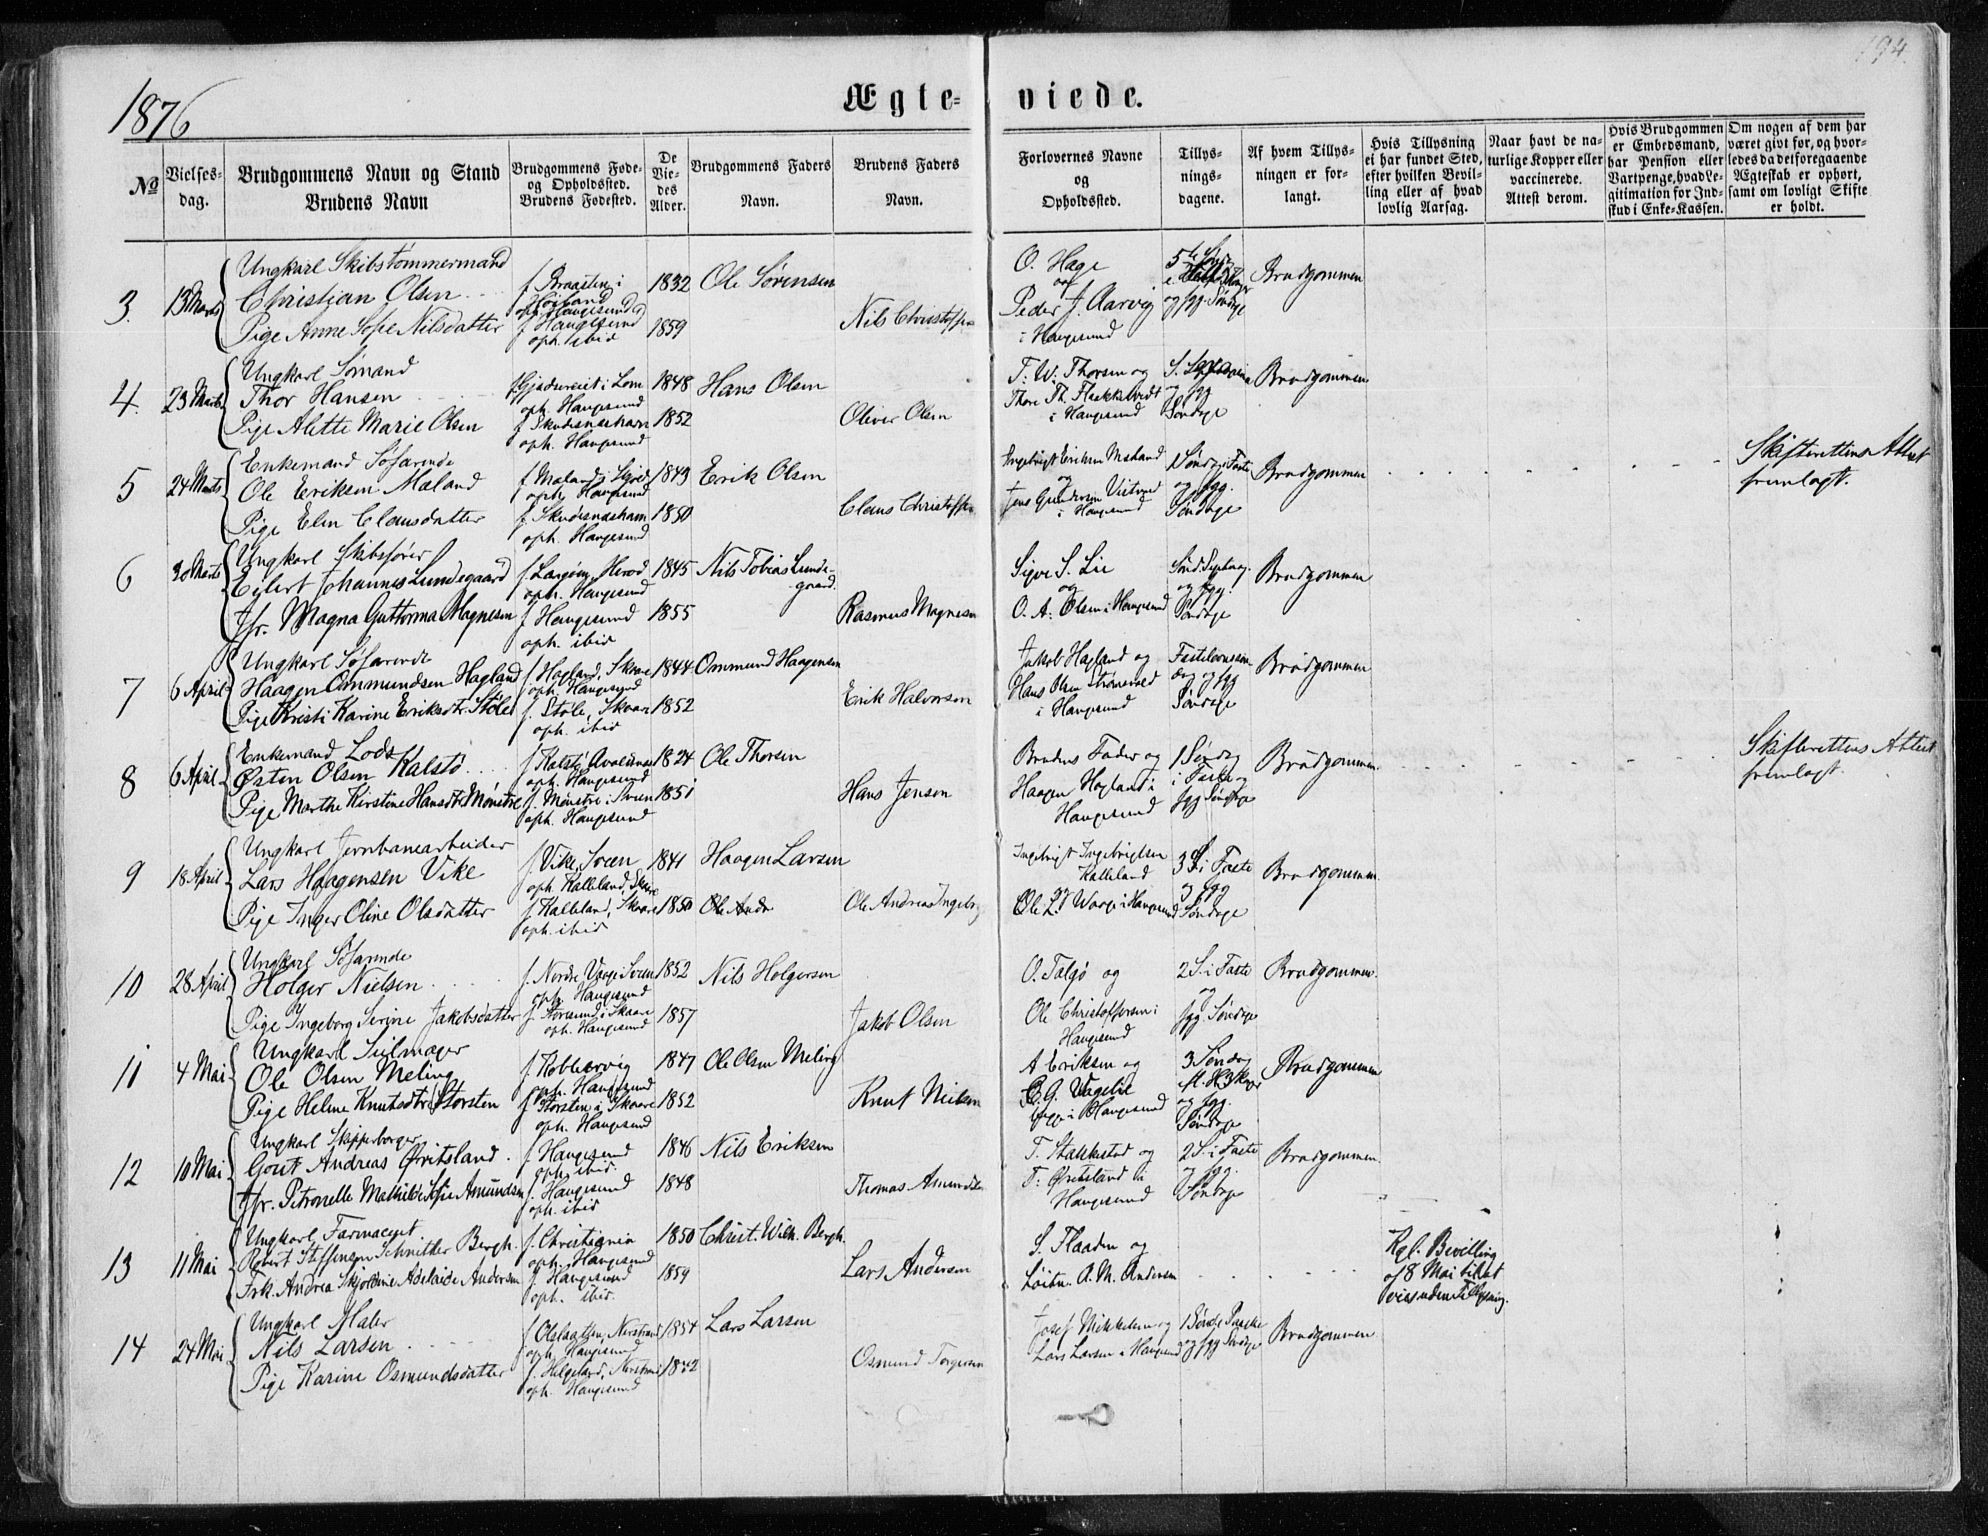 194.
1876
Ægte- viede.
No
Vielses-
dag.
Brudgommens Navn og Stand
Brudens Navn
Brudgommens Føde-
og Opholdssted.
Brudens Fødested.
De
Vie-
des
Alder.
Brudgommens Faders
Navn.
Brudens Faders
Navn.
Forlovernes Navne
og
Opholdssted.
Tillys-
nings-
dagene.
Af hvem Tillys-
ningen er for-
langt.
Hvis Tillysning
ei har fundet Sted,
efter hvilken Bevil-
ling eller af hvad
lovlig Aarsag.
Naar havt de na-
turlige Kopper eller
vaccinerede.
Attest derom.
Hvis Brudgommen
er Embedsmand,
har Pension eller
Vartpenge, hvad Le-
gitimation for Ind-
skud i Enke-Kassen.
Om nogen af dem har
været givt før, og hvor-
ledes da det foregaaende
Ægteskab er ophørt,
samt om lovligt Skifte
er holdt.
3. 13 Marts
Ungkarl Skibstømmermand
Christian Olsen
Pige Anne Sofie Nilsdatter
f. Braasten i
Høiland
oph. Haugesund
f. Haugesund
oph. ibid
1832
1859
Ole Sørensen
Nils Christoffs
O. Hage
og
Peder J. Aarvig
i Haugesund
og fgg. Søndage
Brudgommen
4. 23 Marts
Ungkarl Sømand
Thor Hansen
Pige Alette Marie Olsen
oph. Haugesund
f. Skudesneshavn
oph. Haugesund
1848
1852
Hans Olsen
Oliver Olsen
T. W. Thorsen og
Thore Th. Flaekketvedt
i Haugesund
og fgg
Søndage
Brudgommen
5 24 Marts
Enkemand Søfarende
Ole Eriksen Maland
Pige Elen Clausdatter
f. Maland i
oph. Haugesund
f. Skudesneshavn
oph. Haugesund
1849
1850
Erik Olsen
Claus Christoffs
Ingebrigt Eriksen Maland
og
Jens Gundersen
i Haugesund
1 Søndag i Faste
og fgg.
Søndage
Brudgommen
Skifterettens Attest
fremlagt.
6 30 Marts
Ungkarl Skibsfører
Eilert Johannes Lundegaard
Jfr. Magna Guttorma Magnesen
f. Langøen, Herød
oph. Haugesund
f. Haugesund
oph. ibid
1845
1855
Nils Tobias Lunde-
gaard.
Rasmus Magnesen
Sigve S. Lie
og
O. A. Olsen i Haugesund
Sønd. Septuag.
og fgg.
Søndage
Brudgommen
7 6 April
Ungkarl Søfarende
Haagen Ommundsen Hagland
Pige Kristi Karine Eriksdtr. Støle
f. Hagland, Skaare
oph. Haugesund
f. Støle, Skaare
oph. ibid
1844
1852
Ommund Haagensen
Erik Halvorsen
Jakob Hagland og
Hans Olsen Strømevold
i Haugesund
Fastelavnssøn
dag og fgg
Søndage
Brudgommen
8 6 April
Enkemand Lods
Østen Olsen Kalstø
Pige Marthe Kirstine Hansdtr. Mønstre
f. Kalstø, Avaldsnes
oph. Haugesund
f. Mønstre i Sveen
oph. Haugesund
1824
1851
Ole Thorsen
Hans Jensen
Brudens Fader og
Haagen Hagland i
Haugesund
1 Søndag
i Faste og
fgg Søndage
Brudgommen
Skifterettens Attest
fremlagt.
9 18 April
Ungkarl Jernbanearbeider
Lars Haagensen Vike
Pige Inger Oline Olsdatter
f. Vike, Sveen
oph. Kalleland, Skaare
f. Kalleland, Skaare
oph. ibid
1841
1850
Haagen Larsen
Ole Andr
Ole Andreas Ingebr
Ingebrigt Ingebrigtsen
Kalleland
og
Ole L. Worge i Haugesund
3 S. i Faste
og fgg
Søndage
Brudgommen
10 28 April
Ungkarl Søfarende
Holger Nielsen
Pige Ingeborg Serine Jakobsdatter
f. Nordre Vaage Sveen
oph. Haugesund
f. Føresund i Skaare
oph. Haugesund
1852
1857
Nils Holgersen
Jakob Olsen
O. Talgø og
Ole Christoffersen i
Haugesund
2 S. i Faste
og
fgg. Søndage
Brudgommen
11 4 Mai
Ungkarl Seilmager
Ole Olsen Meling
Pige Helene Knutsdtr. Storsten
f. Kobbervig
oph. Haugesund
f. Storsten i Skaare
oph. Haugesund
1847
1852
Ole Olsen Meling
Knut Nielsen
A Eriksen og
i Haugesund
3 Søndag
og fgg.
Søndage
Brudgommen
12 10 Mai
Ungkarl Skipperborger
Gout Andreas Øvritsland
Jfr. Petronelle Mathilde Sofie Amundsen
f. Haugesund
oph. ibid.
f. Haugesund
oph. ibid
1846
1848
Nils Eriksen
Thomas Amunds
T. Stakkestad og
T. Øvritsland i
Haugesund
2 S. i Faste
og fgg.
Søndage
Brudgommen.
13 11 Mai
Ungkarl Farmaceut
Robert Steffensen Schnitler Bergh
Frk. Andrea Skjoldine Adelaide Andersen
f. Christiania
oph. Haugesund
f. Haugesund
oph. ibid.
1850
1859
Christ. Wilh. Bergh.
Lars Andersen
S. Flaaden og
Løitn. A. M. Andersen
Kgl. Bevilling
af 8 Mai til at
vies uden Tillysning.
14 24 Mai
Ungkarl Maler
Nils Larsen
Pige Karine Osmundsdatter
oph. Haugesund
f. Helgeland, Nerstrand
oph. Haugesund
1854
1842
Lars Larsen
Osmund Torgersen
Josef Mikkelsen og
Lars Larsen i Haugesund
1 Sønd. e Paaske
og fgg Søndage
Brudgommen